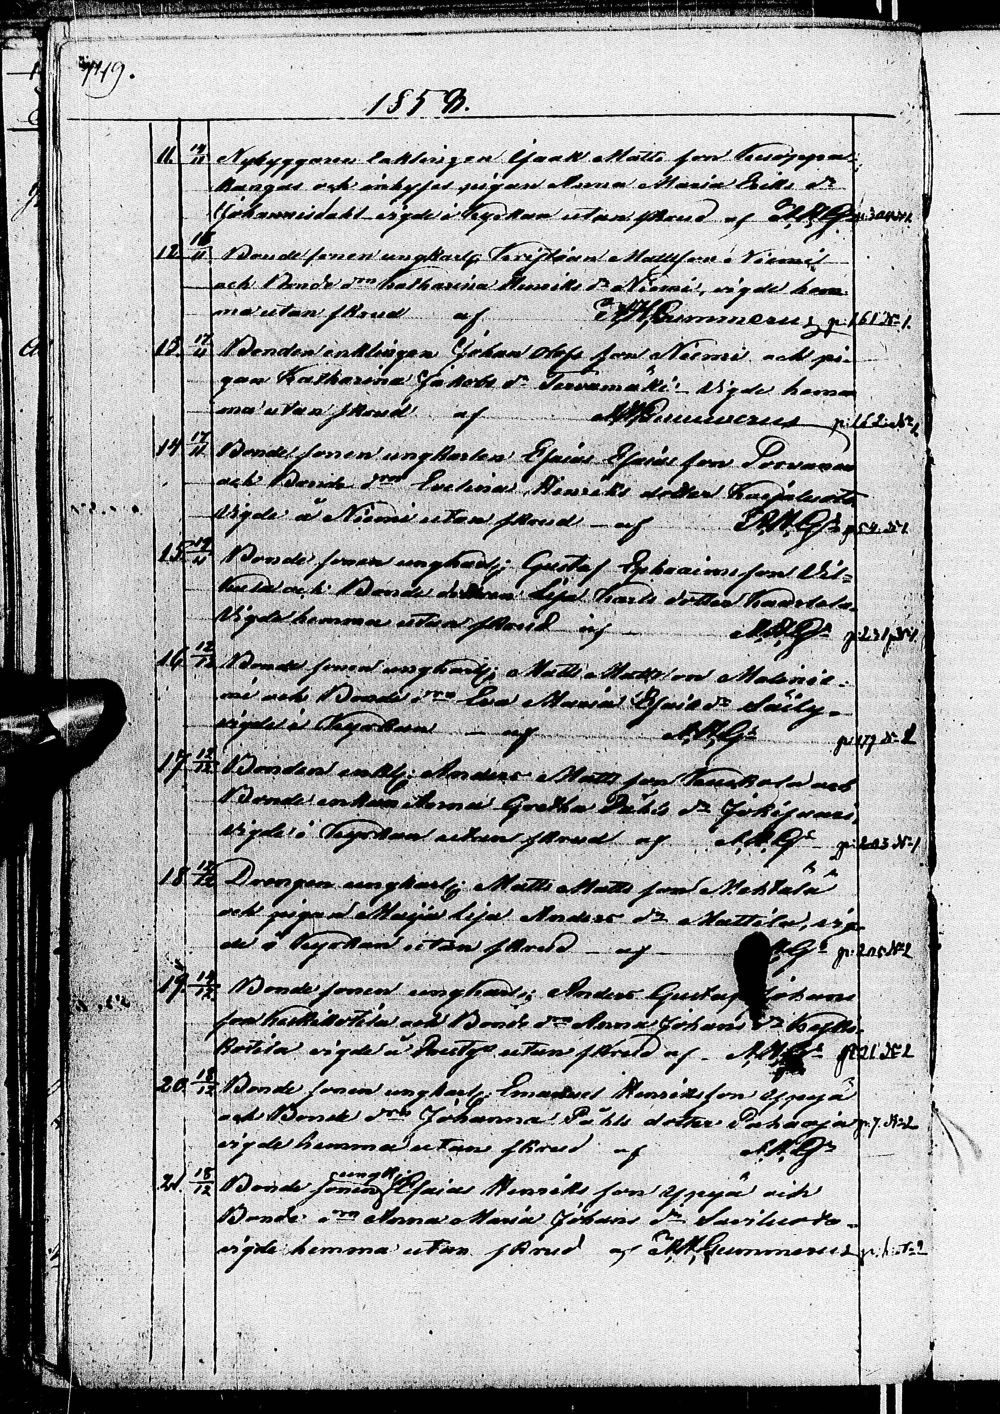 149.
1853.
11. 14/11 Nybyggaren enklingen Isaak Matts son Knuppa-
kangas och inhyses pigan Anna Maria Eriks dr
Johannisdahl vigde i Kyrkan utan skrud af A.H.G. p. 304
12. 16/11 Bonde sonen ungkarlj Kristian Mattsson Niemi
och Bonde drn Katharina Henriks dr Niemi, vigde hem
ma utan skrud af A.H. Gummerus p. 161 No 1.
13. 17/11 Bonden enklingen Johan Olofs son Niemi och pi-
gan Katharina Jakobs dr Tervamäki - vigde hem
ma utan skrud af A.H. Gummerus p. 162 No 2
14. 17/11 Bonde sonen ungkarlen Esaias Esaias son Porvanen
och Bonde drn Evelina Henriks dotter Karjaluoto
vigde å Niemi utan skrud - af A.H.G. p. 54 No 1
15. Bonde sonen ungkarlj Gustaf Ephraims son Vil-
kula och Bonde dottren Lisa Karls dotter Kaarlela.
vigde hemma utan skrud af A.H.G. p. 231 No 1
16. 12/12 Bonde sonen ungkarlj Matts Mattsson Malinie-
mi och Bonde drn Eva Maria Esais dr Säily-
vigde i Kyrkan - af A.H.G. p. 177 No 2
17. 12/12 Bonden enklj Anders Matts son Keuskola och
Bonde enkan Anna Gretha Påhls dr Jokisaari,
vigde i Kyrkan utan skrud af A.H.G. p. 203 No 1
18. 12/12 Drengen ungkarlj Matts Matts son Mehtälä
och pigan Maija Lisa Anders dr Mattila, vig-
de i Kyrkan utan skrud - af H.G. p. 205 No 2
19. 14/12 Bonde sonen ungkarlj Anders Gustaf Johans
son Keskikotila och Bonde drn Anna Johans dr Keski-
kotila vigde å utan skrud af - A.H.G. p. 21 No 2
20. 18/12 Bonde sonen ungkarlj Emanuel Henriksson Yppyä
och Bonde drn Johanna Påhls dotter Pahaoja p. 7 No 2
vigde hemma utan skrud af A.H.G.
21. 18/12 Bonde sonen ungkj Esaias Henriks son Yppyä och
Bonde drn Anna Maria Johans dr Saviluoto-
vigde hemma utan skrud af A.H. Gummerus p. 6 No 2